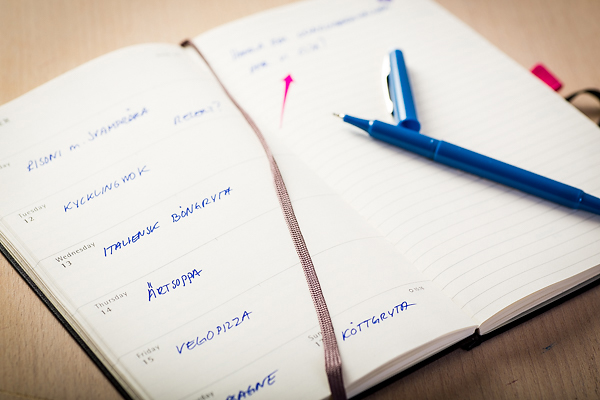 RISONI M. SVAMPRÖRA
RECEPT?
Tuesday
12
KYCKLINGWOK
Wednesday
13
ITALIENSK BÖNGRYTA
Thursday
14
ÄRTSOPPA
Friday
15
VEGOPIZZA
KÖTTGRYTA